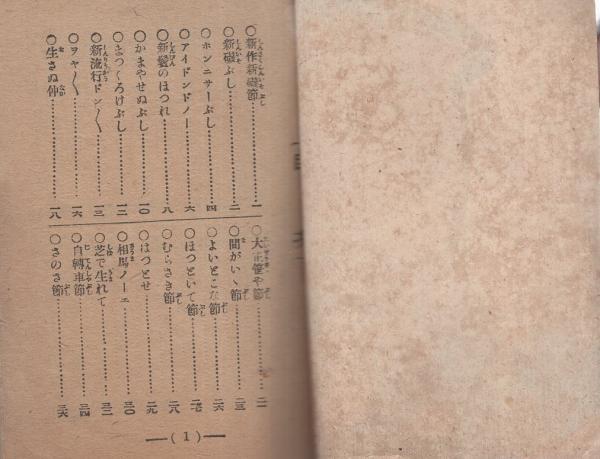 ○新作新磯節……一
○新磯ぶし……二
○ホンニサーぶし……四
○アイドンドノー……六
○新鬢のほつれ……八
○かまやせぬぶし……一〇
○さつくろけぶし……一二
○新流行ドン〱……一三
○ヲヤ〱……一六
○生さぬ仲……一八
○大正笹や節……二一
○間がいゝ節……二三
○よいとこな節……二六
○ほつといて節……二七
○むらさき節……二八
○はつとせ……二九
○相馬ノーエ……三〇
○芝で生れて……三二
○自轉車節……三四
○さのさ節……三六
(1)